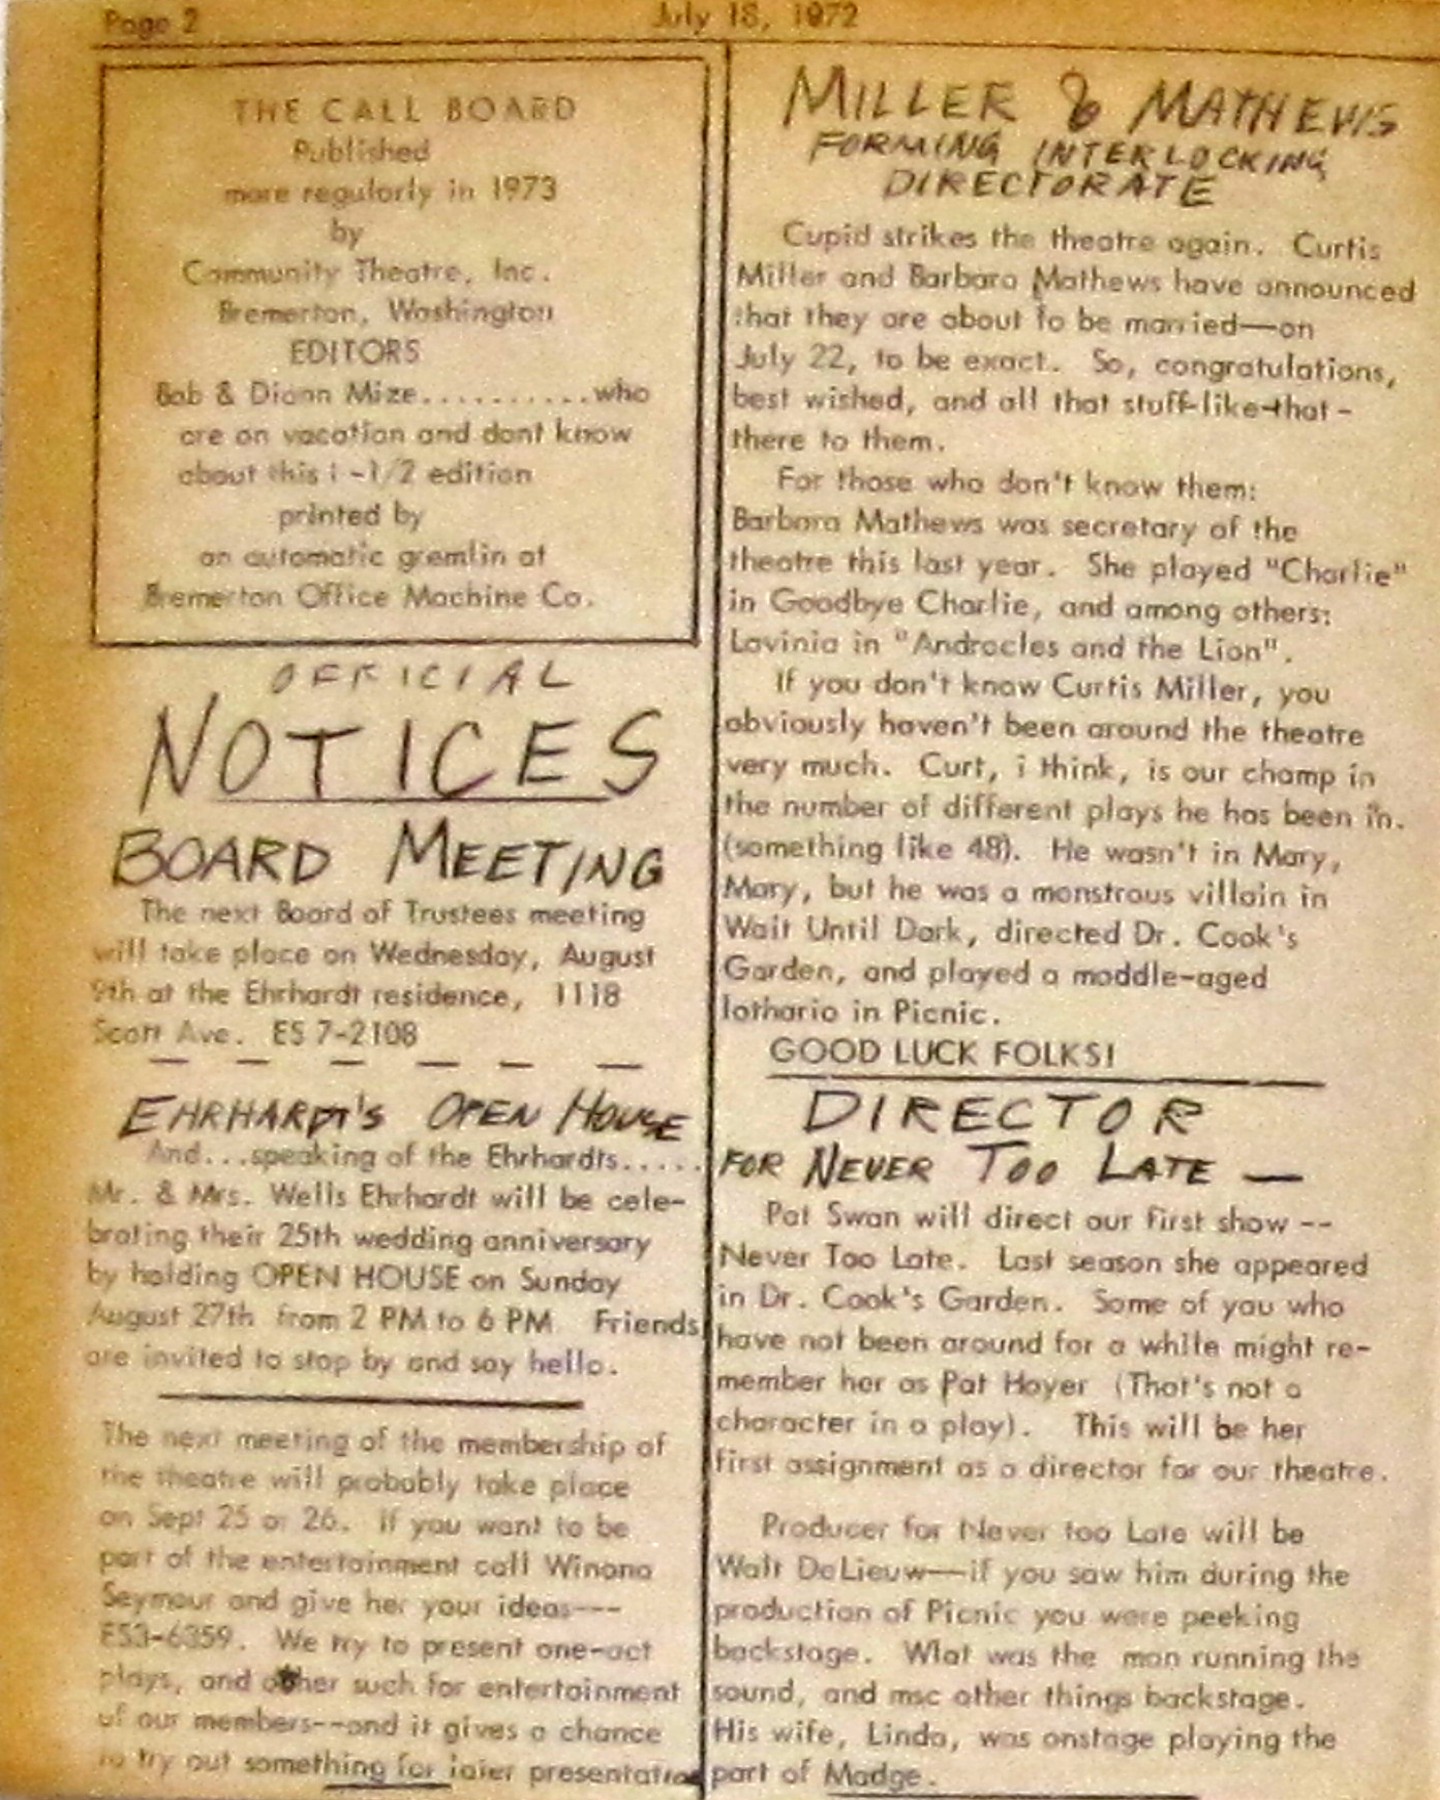 Page 2
July 18, 1972
THE CALL BOARD
Published
more regularly in 1973
by
Community Theatre, Inc.
Bremerton, Washington
EDITORS
Bob & Diann Mize...........who
are on vacation and dont know
about this 1 -1/2 edition
printed by
an automatic gremlin at
Bremerton Office Machine Co.
OFFICIAL
NOTICES
BOARD MEETING
The next Board of Trustees meeting
will take place on Wednesday, August
9th at the Ehrhardt residence, 1118
Scott Ave. ES 7-2108
— — — — — —
EHRHARDT'S OPEN HOUSE
And...speaking of the Ehrhardts.....
Mr. & Mrs. Wells Ehrhardt will be cele-
brating their 25th wedding anniversary
by holding OPEN HOUSE on Sunday
August 27th from 2 PM to 6 PM Friends
are invited to stop by and say hello.
The next meeting of the membership of
the theatre will probably take place
on Sept 25 or 26. If you want to be
part of the entertainment call Winona
Seymour and give her your ideas---
ES3-6359. We try to present one-act
plays, and other such for entertainment
of our members--and it gives a chance
to try out something for later presentation
MILLER & MATHEWS
FORMING INTERLOCKING
DIRECTORATE
Cupid strikes the theatre again. Curtis
Miller and Barbara Mathews have announced
that they are about to be married—on
July 22, to be exact. So, congratulations,
best wished, and all that stuff-like-that-
there to them.
For those who don't know them:
Barbara Mathews was secretary of the
theatre this last year. She played "Charlie"
in Goodbye Charlie, and among others:
Lavinia in "Androcles and the Lion".
If you don't know Curtis Miller, you
obviously haven't been around the theatre
very much. Curt, i think, is our champ in
the number of different plays he has been in.
(something like 48). He wasn't in Mary,
Mary, but he was a monstrous villain in
Wait Until Dark, directed Dr. Cook's
Garden, and played a moddle-aged
lothario in Picnic.
GOOD LUCK FOLKS!
DIRECTOR
FOR NEVER TOO LATE —
Pat Swan will direct our first show --
Never Too Late. Last season she appeared
in Dr. Cook's Garden. Some of you who
have not been around for a while might re-
member her as Pat Hoyer (That's not a
character in a play). This will be her
first assignment as a director for our theatre.
Producer for Never too Late will be
Walt DeLieuw—if you saw him during the
production of Picnic you were peeking
backstage. Wlat was the man running the
sound, and msc other things backstage.
His wife, Linda, was onstage playing the
part of Madge.